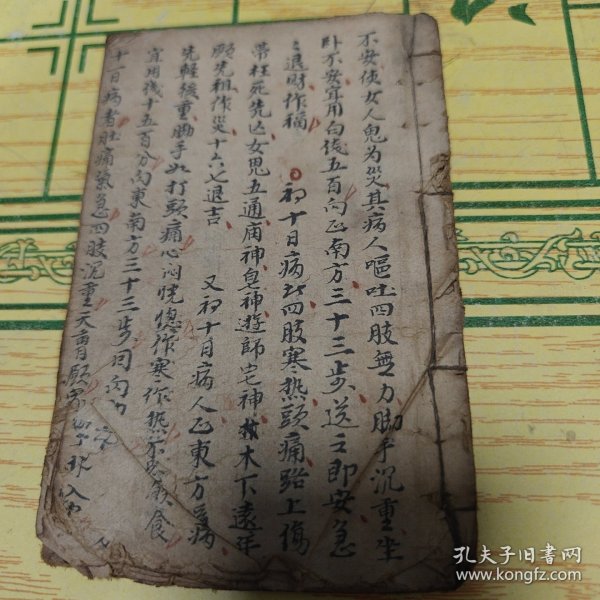 不安使女人鬼为災其病人嘔吐四肢無力脚手沉重坐
卧不安宜用白钱五百向正南方三十三步送之即安急
之退財作福 初十日病者四肢寒热頭痛路上傷
吊枉死先亡女鬼五通庙神皂神遊師宅神樹木下遠年
愿先祖作災十六七退吉 又初十日病人正東方得病
先輕後重脚手如打頭痛心闷恍惚作寒作热不思飲食
宜用钱十五百分向東南方三十三步
十一日病者肚痛氣急四肢沉重
孔夫子旧书网
www.kongfz.com